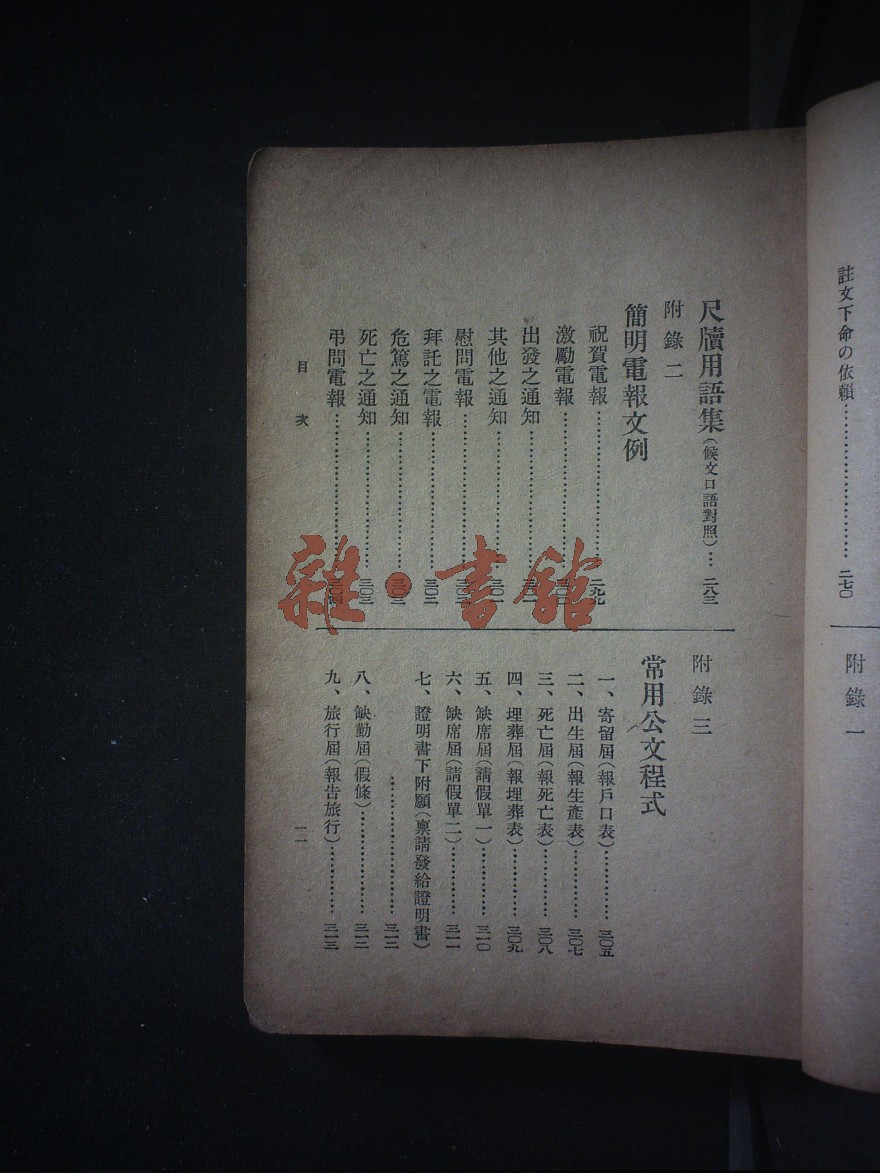 註文下命の依賴……………………二七〇
附錄一
尺牘用語集(候文口語對照)…二八三
附錄二
簡明電報文例
祝賀電報……………………二九九
激勵電報……………………三〇〇
出發之通知…………………
其他之通知…………………三〇一
慰問電報……………………
拜託之電報…………………三〇二
危篤之通知…………………三〇三
死亡之通知…………………三〇三
弔問電報……………………三〇四
附錄三
常用公文程式
一、寄留屆(報戶口表)…………三〇五
二、出生屆(報生產表)…………三〇七
三、死亡屆(報死亡表)…………三〇八
四、埋葬屆(報埋葬表)…………三〇九
五、缺席屆(請假單一)…………三一〇
六、缺席屆(請假單二)…………三一一
七、證明書下附願(禀請發給證明書)
……………………三一二
八、缺勤屆(假條)………………三一二
九、旅行屆(報告旅行)…………三一三
目次
一一
雜·書館